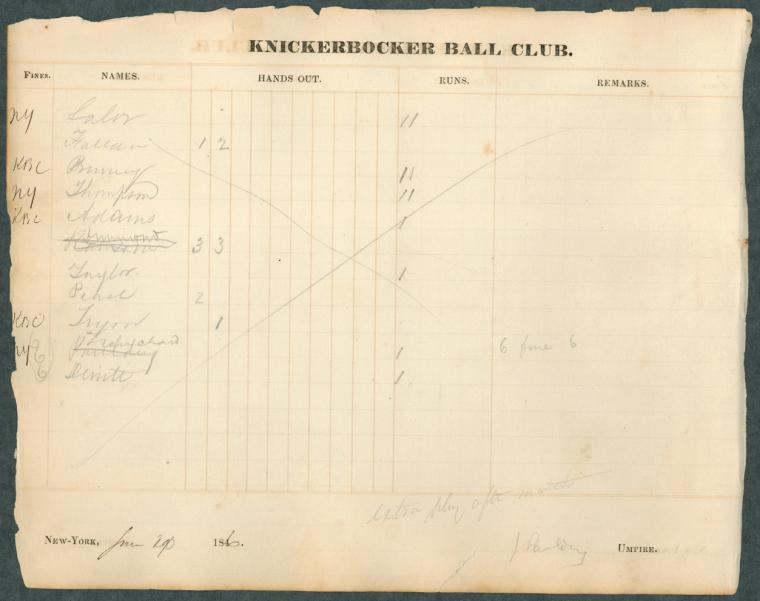 KNICKERBOCKER BALL CLUB.
FINES. NAMES. HANDS OUT. RUNS. REMARKS.
NY Lalor 11
1 2
KBC 11
NY Thompson 11
KBC Adams 1
3 3
Taylor 1
2
KBC Tryon 1
NY 6 Paulding 1 6 fine 6
6 1
extra play after match
NEW-YORK, June 1846.
J Paulding UMPIRE.